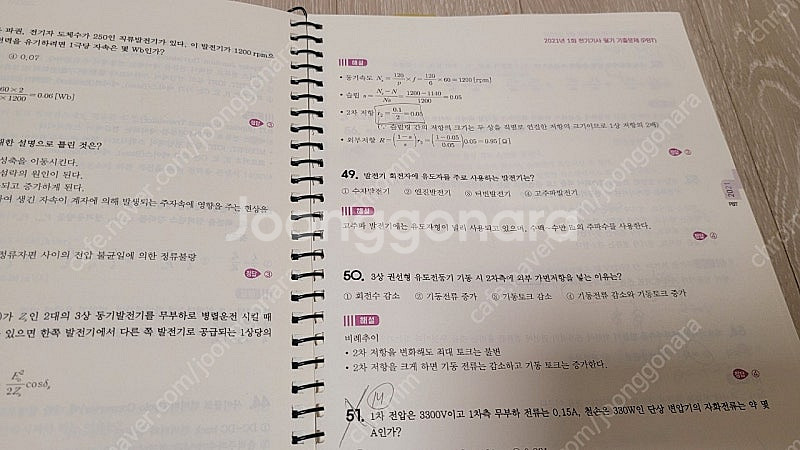 파권, 전기자 도체수가 250인 직류발전기가 있다. 이 발전기가 1200 rpm으
전력을 유기하려면 1극당 자속은 몇 Wb인가?
④ 0.07
60×2
×1200 = 0.06 [Wb]
정답 ③
대한 설명으로 틀린 것은?
성축을 이동시킨다.
섬락의 원인이 된다.
되고 증가하게 된다.
하여 생긴 자속이 계자에 의해 발생되는 주자속에 영향을 주는 현상을
정류자편 사이의 전압 불균일에 의한 정류불량
정답 ③
가 Zs인 2대의 3상 동기발전기를 무부하로 병렬운전 시킬 때
있으면 한쪽 발전기에서 다른 쪽 발전기로 공급되는 1상당의
cosδs
2021년 1회 전기기사 필기 기출문제 (PBT)
해설
• 동기속도 Ns = 120/p × f = 120/6 × 60 = 1200 [rpm]
• 슬립 s = Ns − N / Ns = 1200 − 1140 / 1200 = 0.05
• 2차 저항 r2 = 0.1/2 = 0.05
(∵ 슬립링 간의 저항의 크기는 두 상을 직렬로 연결한 저항의 크기이므로 1상 저항의 2배)
• 외부저항 R = (1−s / s) r2 = (1−0.05 / 0.05) 0.05 = 0.95 [Ω]
정답
49. 발전기 회전자에 유도자를 주로 사용하는 발전기는?
① 수차발전기 ② 엔진발전기 ③ 터빈발전기 ④ 고주파발전기
해설
고주파 발전기에는 유도자형이 널리 사용되고 있으며, 수백~수만 의 주파수를 사용한다.
정답 ④
2021
PBT
50. 3상 권선형 유도전동기 기동 시 2차측에 외부 가변저항을 넣는 이유는?
① 회전수 감소 ② 기동전류 증가 ③ 기동토크 감소 ④ 기동전류 감소와 기동토크 증가
해설
비례추이
• 2차 저항을 변화해도 최대 토크는 불변
• 2차 저항을 크게 하면 기동 전류는 감소하고 기동 토크는 증가한다.
정답 ④
51. 1차 전압은 3300V이고 1차측 무부하 전류는 0.15A, 철손은 330W인 단상 변압기의 자화전류는 약 몇
A인가?
Joonggonara
cafe.naver.com/joonggonara